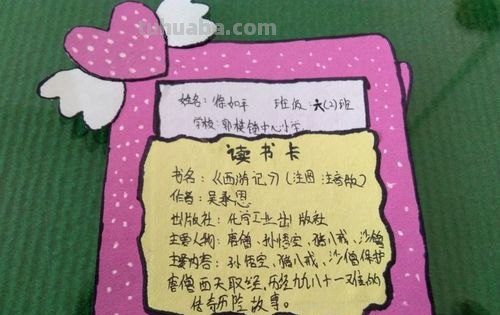 tuhuaba.com
姓名：徐如平 班级：六(2)班
学校：郭棋镇中心小学
读书卡
书名：《西游记》(注图 注音版)
作者：吴承恩
出版社：化学工业出版社
主要人物：唐僧、孙悟空、猪八戒、沙僧
主要内容：孙悟空、猪八戒、沙僧保护
唐僧西天取经，历经九九八十一难的
传奇历险故事。